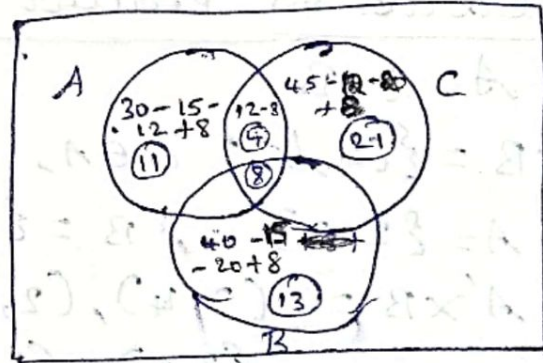 A
C
30 - 15 -
12 + 8
11
12-8
4
8
45 - 12 - 20
+ 8
21
40 - 15
- 20 + 8
13
B